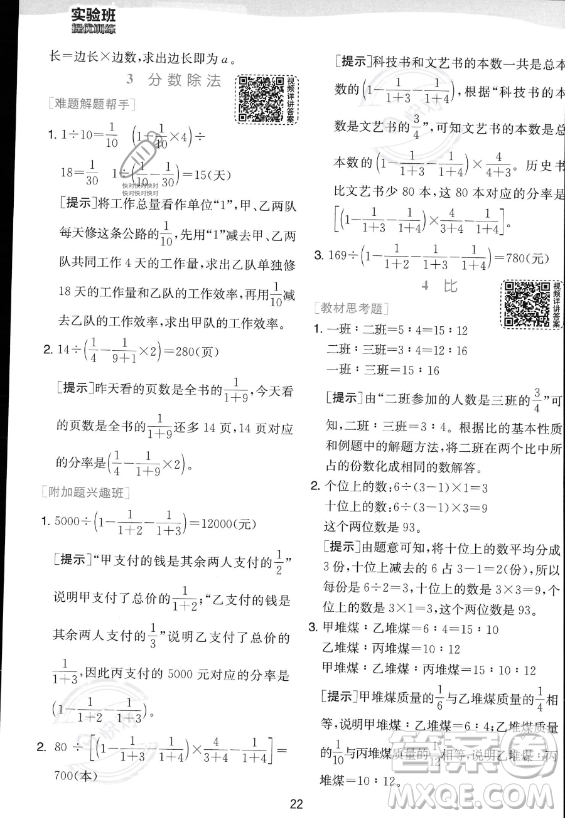 实验班
提优训练
长=边长×边数,求出边长即为a。
3 分数除法
视频详讲答案
[难题解题帮手]
1. 1÷10=1/10 (1-1/10×4)÷
18=1/30 1÷(1/10-1/30)=15(天)
快对快对快对
快对快对快对
[提示]将工作总量看作单位“1”,甲、乙两队
每天修这条公路的1/10,先用“1”减去甲、乙两
队共同工作4天的工作量,求出乙队单独工作
18天的工作量和乙队的工作效率,再用1/10减
去乙队的工作效率,求出甲队的工作效率。
2. 14÷(1/4-1/(9+1)×2)=280(页)
[提示]昨天看的页数是全书的1/(1+9),今天看
的页数是全书的1/(1+9)还多14页,14页对应
的分率是(1/4-1/(1+9)×2)。
[附加题兴趣班]
1. 5000÷(1-1/(1+2)-1/(1+3))=12000(元)
[提示]“甲支付的钱是其余两人支付的1/2”
说明甲支付了总价的1/(1+2);“乙支付的钱是
其余两人支付的1/3”说明乙支付了总价的
1/(1+3),因此丙支付的5000元对应的分率是
(1-1/(1+2)-1/(1+3))。
2. 80÷[(1-1/(1+3)-1/(1+4))×3/4-1/(1+4)]=
700(本)
[提示]科技书和文艺书的本数一共是总本
数的(1-1/(1+3)-1/(1+4)),根据“科技书的本
数是文艺书的3/4”,可知文艺书的本数是总
本数的(1-1/(1+3)-1/(1+4))×4/(3+4)。历史书
比文艺书少80本,这80本对应的分率是
[(1-1/(1+3)-1/(1+4))×4/(3+4)-1/(1+4)]。
3. 169÷(1-1/(1+2)-1/(1+3)-1/(1+4))=780(元)
4 比
视频详讲答案
[教材思考题]
1. 一班∶二班=5∶4=15∶12
二班∶三班=3∶4=12∶16
一班∶三班=15∶16
[提示]由“二班参加的人数是三班的3/4”可
知,二班∶三班=3∶4。根据比的基本性质
和例题中的解题方法,将二班在两个比中所
占的份数化成相同的数解答。
2. 个位上的数:6÷(3-1)×1=3
十位上的数:6÷(3-1)×3=9
这个两位数是93。
[提示]由题意可知,将十位上的数平均分成
3份,十位上的数减去的6占3-1=2(份),所以
每份是6÷2=3,个位上的数是3×1=3,
十位上的数是3×3=9,这个两位数是93。
3. 甲堆煤∶乙堆煤=6∶4=15∶10
乙堆煤∶丙堆煤=10∶12
甲堆煤∶丙堆煤=15∶12
[提示]甲堆煤质量的1/6与乙堆煤的1/4相
等,说明甲堆煤∶乙堆煤=6∶4。乙堆煤质量
的1/10与丙堆煤的1/12相等,说明乙堆煤∶丙
堆煤=10∶12。
22